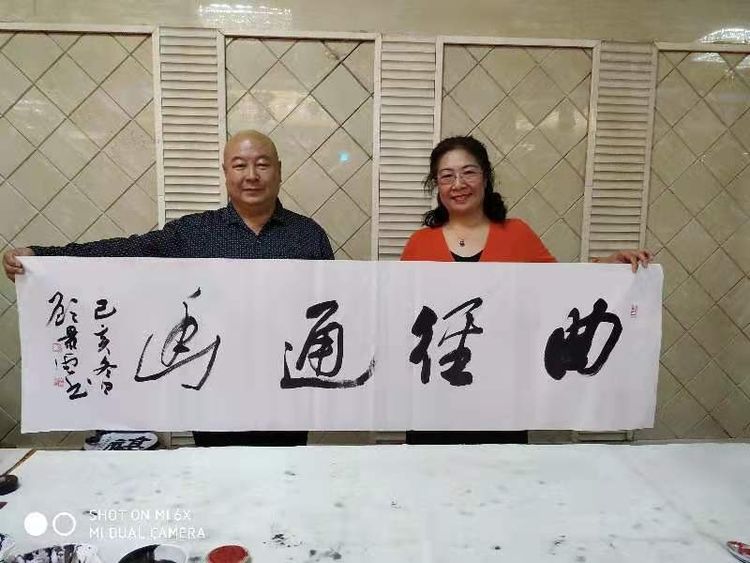 曲径通幽
己亥春
SHOT ON MI 6X
MI DUAL CAMERA